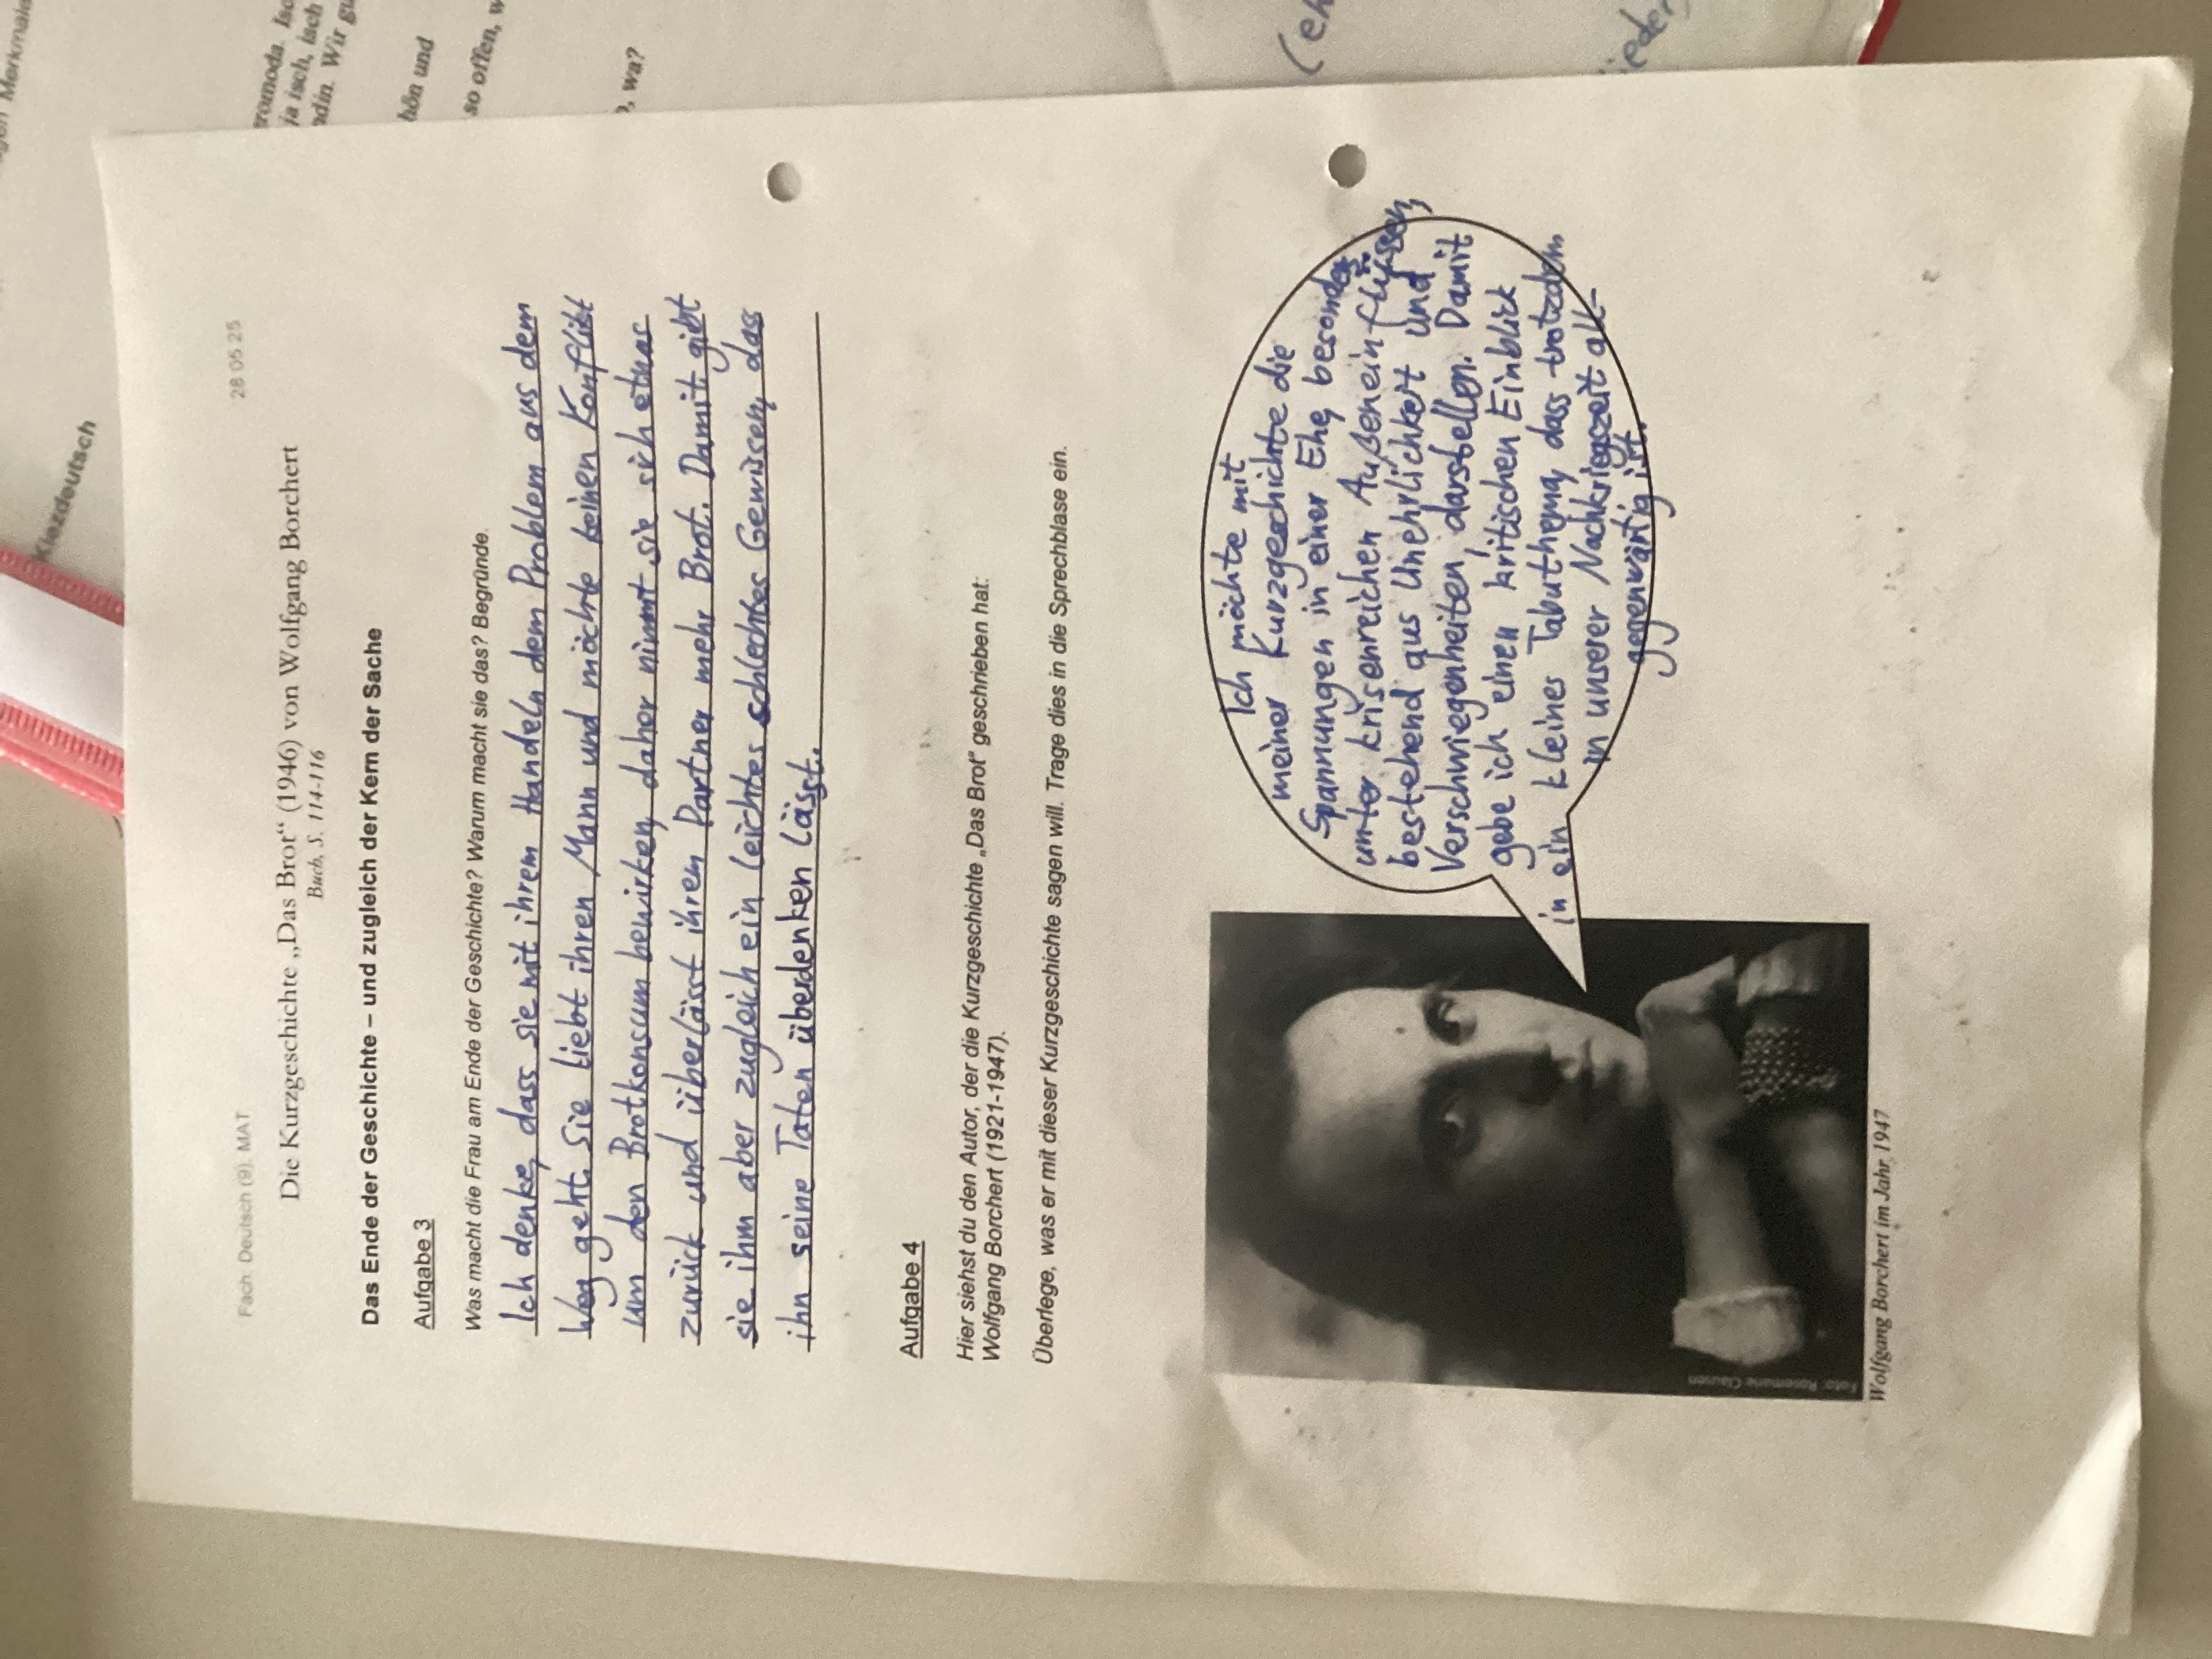 Fach: Deutsch (9), MAT
28 05 25
Die Kurzgeschichte „Das Brot“ (1946) von Wolfgang Borchert
Buch, S. 114-116
Das Ende der Geschichte – und zugleich der Kern der Sache
Aufgabe 3
Was macht die Frau am Ende der Geschichte? Warum macht sie das? Begründe.
Ich denke, dass sie mit ihrem Handeln dem Problem aus dem
Weg geht. Sie liebt ihren Mann und möchte keinen Konflikt
um den Brotkonsum bewirken, daher nimmt sie sich etwas
zurück und überlässt ihrem Partner mehr Brot. Damit gibt
sie ihm aber zugleich ein leichtes schlechtes Gewissen, das
ihn seine Taten überdenken lässt.
Aufgabe 4
Hier siehst du den Autor, der die Kurzgeschichte „Das Brot“ geschrieben hat:
Wolfgang Borchert (1921-1947).
Überlege, was er mit dieser Kurzgeschichte sagen will. Trage dies in die Sprechblase ein.
Ich möchte mit
meiner Kurzgeschichte die
Spannungen in einer Ehe, besonders
unter krisenreichen Außeneinflüssen,
bestehend aus Unehrlichkeit und
Verschwiegenheiten, darstellen. Damit
gebe ich einen kritischen Einblick
in ein kleines Tabuthema, dass trotzdem
in unserer Nachkriegszeit all-
gegenwärtig ist.
Foto: Rosemarie Clausen
Wolfgang Borchert im Jahr 1947
Kiezdeutsch
Merkmale
ja isch, isch
ndin. Wir gu
hön und
so offen, w
wa?
(eh